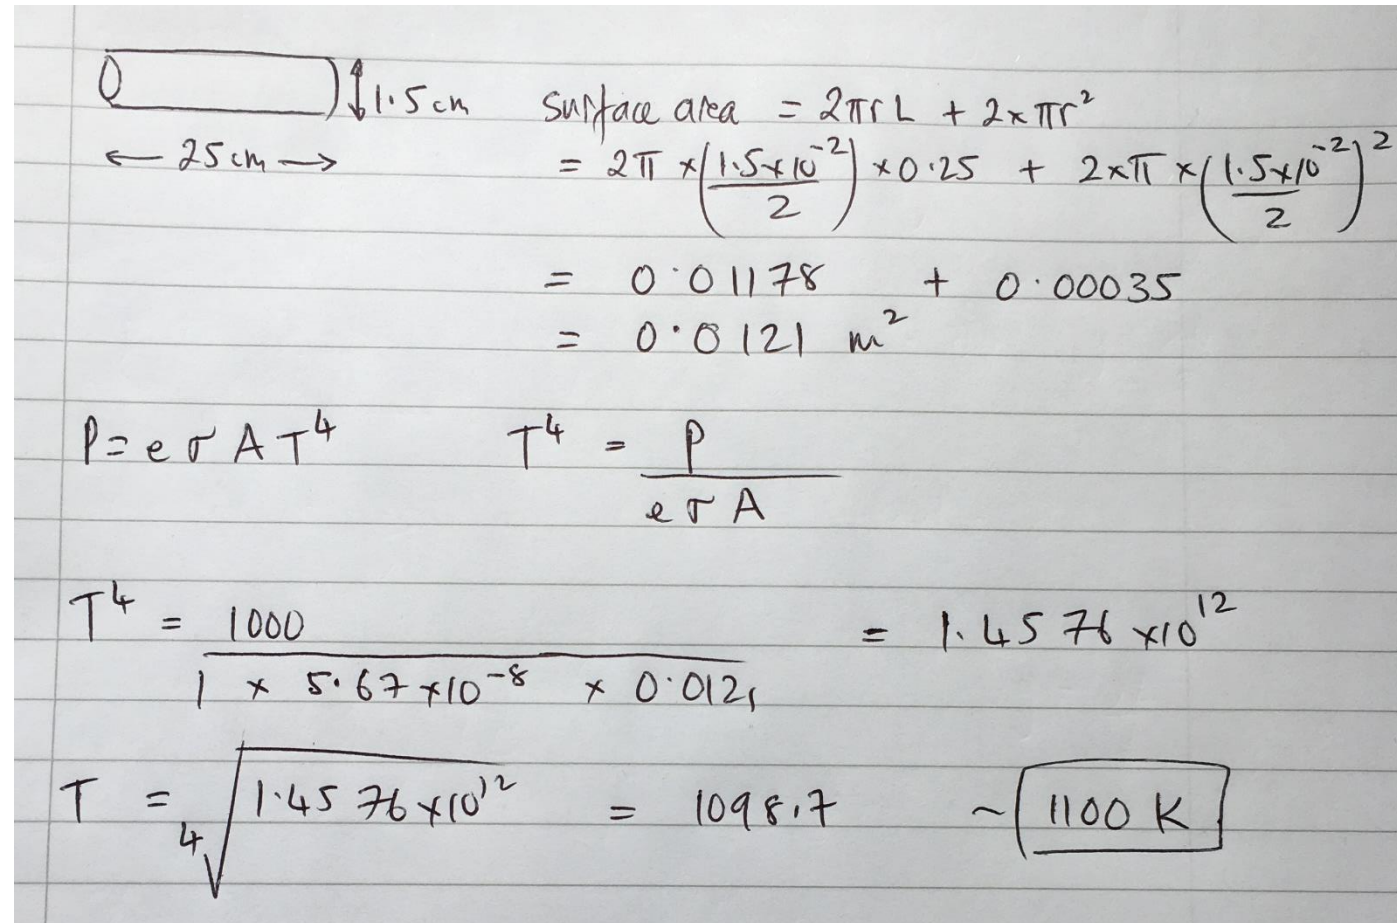 1.5 cm
← 25 cm →
Surface area = 2πr L + 2×πr²
= 2π × (1.5×10⁻²/2) × 0.25 + 2×π × (1.5×10⁻²/2)²
= 0.01178 + 0.00035
= 0.0121 m²
P = e σ A T⁴ T⁴ = P / e σ A
T⁴ = 1000 / 1 × 5.67×10⁻⁸ × 0.0121 = 1.4576 ×10¹²
T = ⁴√1.4576 ×10¹² = 1098.7 ~ 1100 K